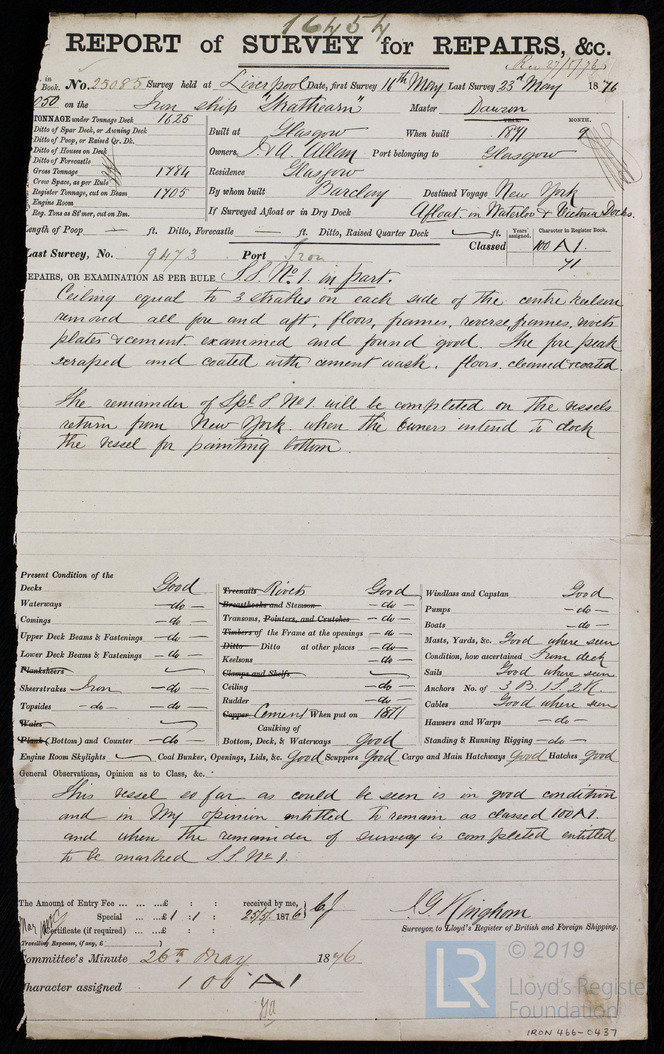 16454
REPORT of SURVEY for REPAIRS, &c.
Rec 27/5/76
in Book. No. 25085 Survey held at Liverpool Date, first Survey 16th May Last Survey 23d May 1876
on the Iron ship "Strathearn" Master Dawson
TONNAGE under Tonnage Deck 1625
Ditto of Spar Deck, or Awning Deck
Ditto of Poop, or Raised Qr. Dk.
Ditto of Houses on Deck
Ditto of Forecastle
Gross Tonnage 1784
Crew Space, as per Rule
Register Tonnage, cut on Beam 1705
Engine Room
Reg. Tons as St'mer, cut on Bm.
Built at Glasgow When built YEAR. 1871 MONTH. 9
Owners, J & A Allan Port belonging to Glasgow
Residence Glasgow
By whom built Barclay Destined Voyage New York
If Surveyed Afloat or in Dry Dock Afloat in Waterloo & Victoria Docks.
Length of Poop — ft. Ditto, Forecastle — ft. Ditto, Raised Quarter Deck ft.
Years assigned. Character in Register Book.
Last Survey, No. 9473 Port Iron Classed 100 A 1.
71
REPAIRS, OR EXAMINATION AS PER RULE S.S. No. 1. in part.
Ceiling equal to 3 strakes on each side of the centre keelson
removed all fore and aft, floors, frames, reverse frames, rivets
plates & cement examined and found good. The fore peak
scraped and coated with cement wash. floors cleaned & coated.
The remainder of Spl S No 1. will be completed on the vessels
return from New York when the owners intend to dock
the vessel for painting bottom.
Present Condition of the
Decks Good
Waterways — do —
Comings — do —
Upper Deck Beams & Fastenings — do —
Lower Deck Beams & Fastenings — do —
Planksheers
Sheerstrakes Iron — do —
Topsides — do — — do —
Wales
Plank (Bottom) and Counter — do —
Treenails Rivets Good
Breasthooks and Stemson — do —
Transoms, Pointers, and Crutches — do —
Timbers of the Frame at the openings — do —
Ditto Ditto at other places — do —
Keelsons — do —
Clamps and Shelfs
Ceiling — do —
Rudder — do —
Copper Cement When put on 1871
Caulking of
Bottom, Deck, & Waterways Good
Windlass and Capstan Good
Pumps — do —
Boats — do —
Masts, Yards, &c. Good where seen
Condition, how ascertained From deck
Sails Good where seen
Anchors No. of 3 B. 1 S. 2 K.
Cables Good where seen
Hawsers and Warps — do —
Standing & Running Rigging — do —
Engine Room Skylights Coal Bunker, Openings, Lids, &c. Good Scuppers Good Cargo and Main Hatchways Good Hatches Good
General Observations, Opinion as to Class, &c.
This vessel so far as could be seen is in good condition
and in my opinion entitled to remain as classed 100 A 1.
and when the remainder of survey is completed entitled
to be marked S.S. No 1.
The Amount of Entry Fee ... ... ...£ : : received by me,
Special ... ...£ 1 : 1 : 25/5/ 1876
Certificate (if required) ... ...£ : :
Travelling Expenses, if any, £
J. G. Kinghorn
Surveyor, to Lloyd's Register of British and Foreign Shipping.
Committee's Minute 26th May 1876
Character assigned 100 A 1
LR
© 2019
Lloyd's Register
Foundation
IRON 466-0437